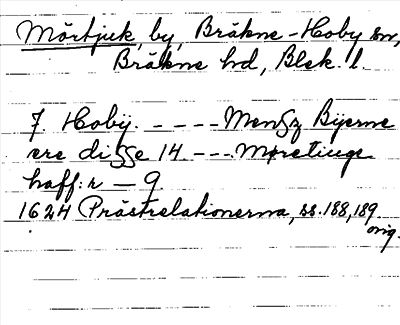 Mörtjuk, by, Bräkne-Hoby sn,
Bräkne hd, Blek. l.
7. Hobÿ. - - - - Mengz Byerne
ere disse 14 - - - Møretiuge
haff:r — 9.
1624 Prästrelationerna, ss. 188, 189.
orig.